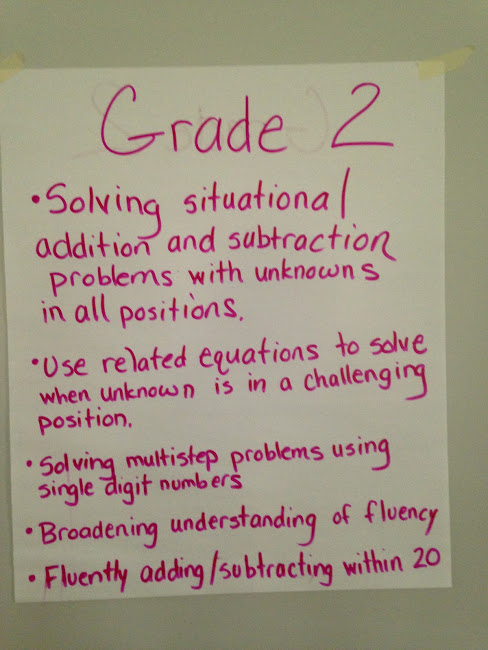 Grade 2
• Solving situational
addition and subtraction
problems with unknowns
in all positions.
• Use related equations to solve
when unknown is in a challenging
position.
• Solving multistep problems using
single digit numbers
• Broadening understanding of fluency
• Fluently adding/subtracting within 20